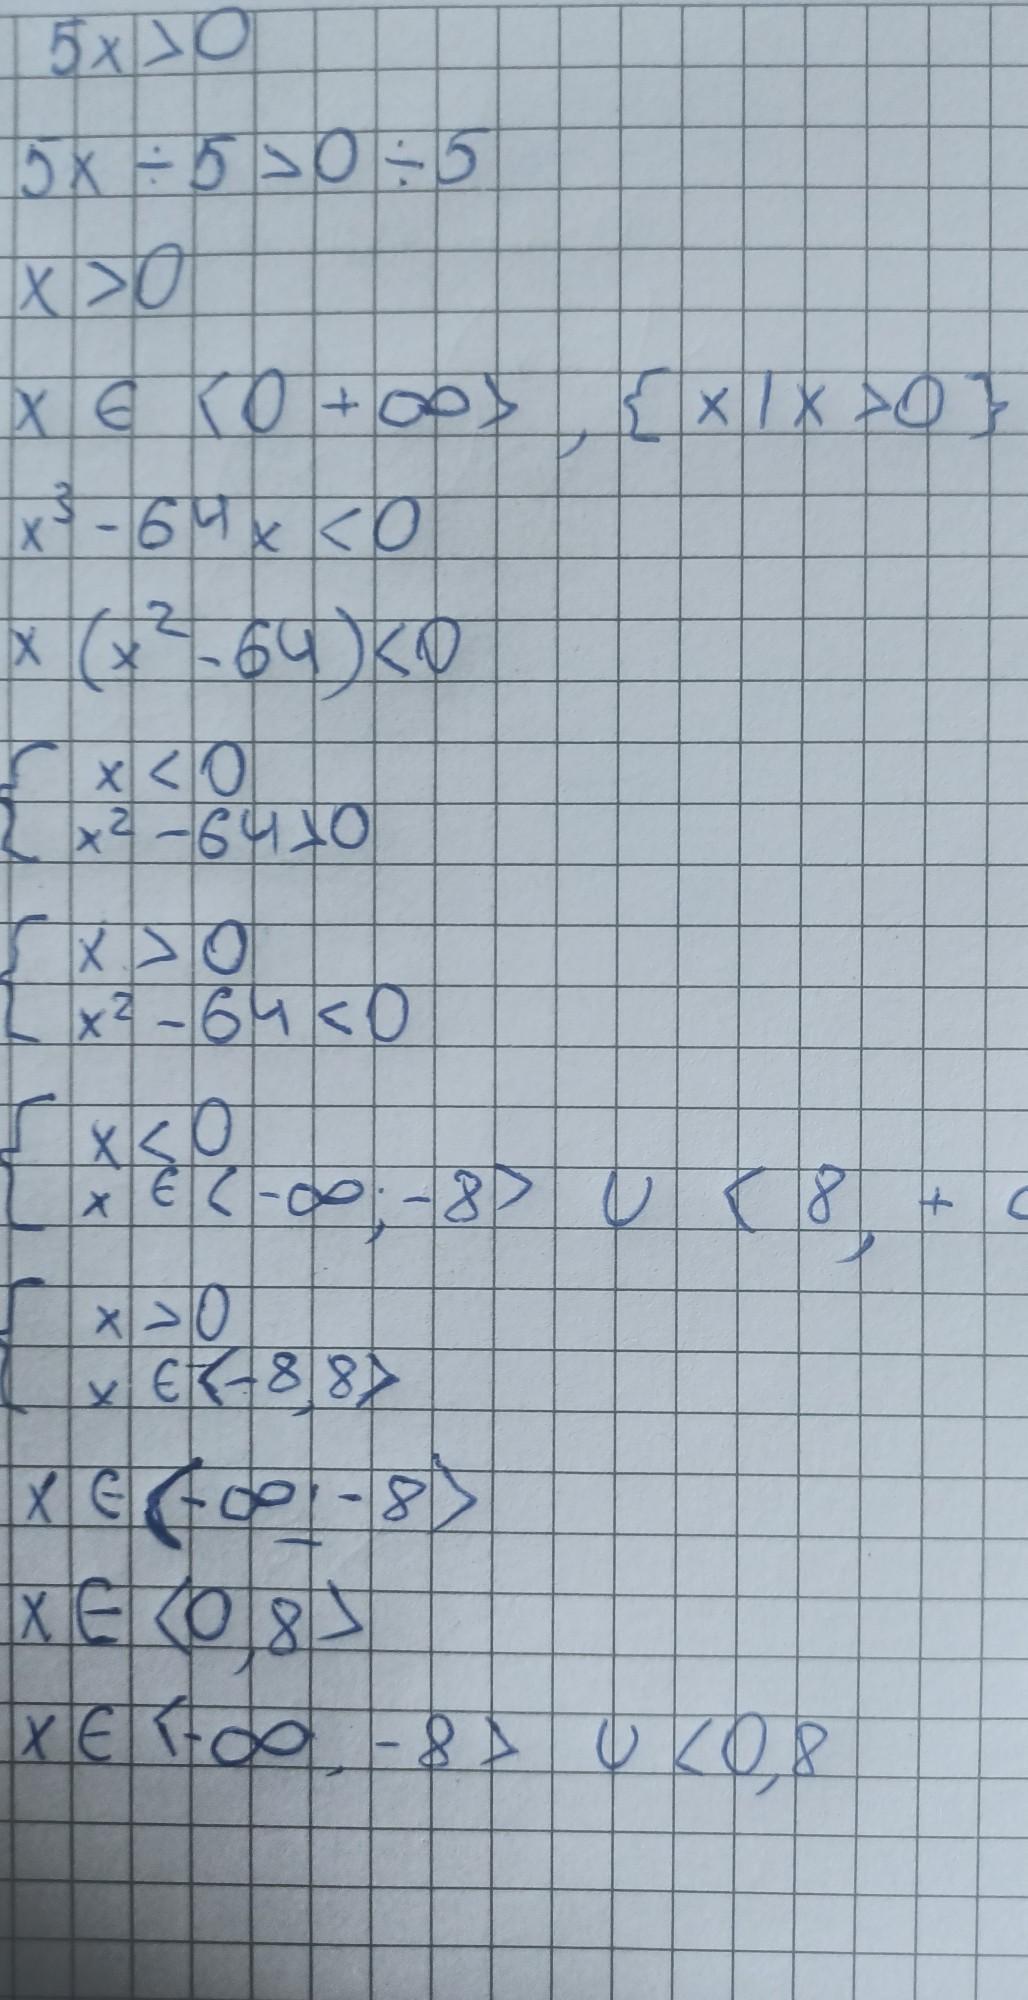 5x > 0
5x ÷ 5 > 0 ÷ 5
x > 0
x ∈ <0 + ∞> , { x | x > 0 }
x³ - 64x < 0
x (x² - 64) < 0
{ x < 0
x² - 64 > 0
{ x > 0
x² - 64 < 0
{ x < 0
x ∈ < -∞; -8> ∪ < 8, +
{ x > 0
x ∈ <-8, 8>
x ∈ <-∞, -8>
x ∈ <0, 8>
x ∈ <-∞, -8> ∪ <0, 8